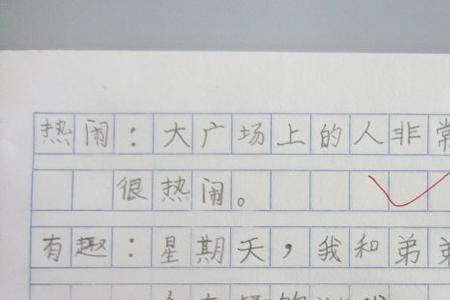 热闹：大广场上的人非常
很热闹。
有趣：星期天，我和弟弟